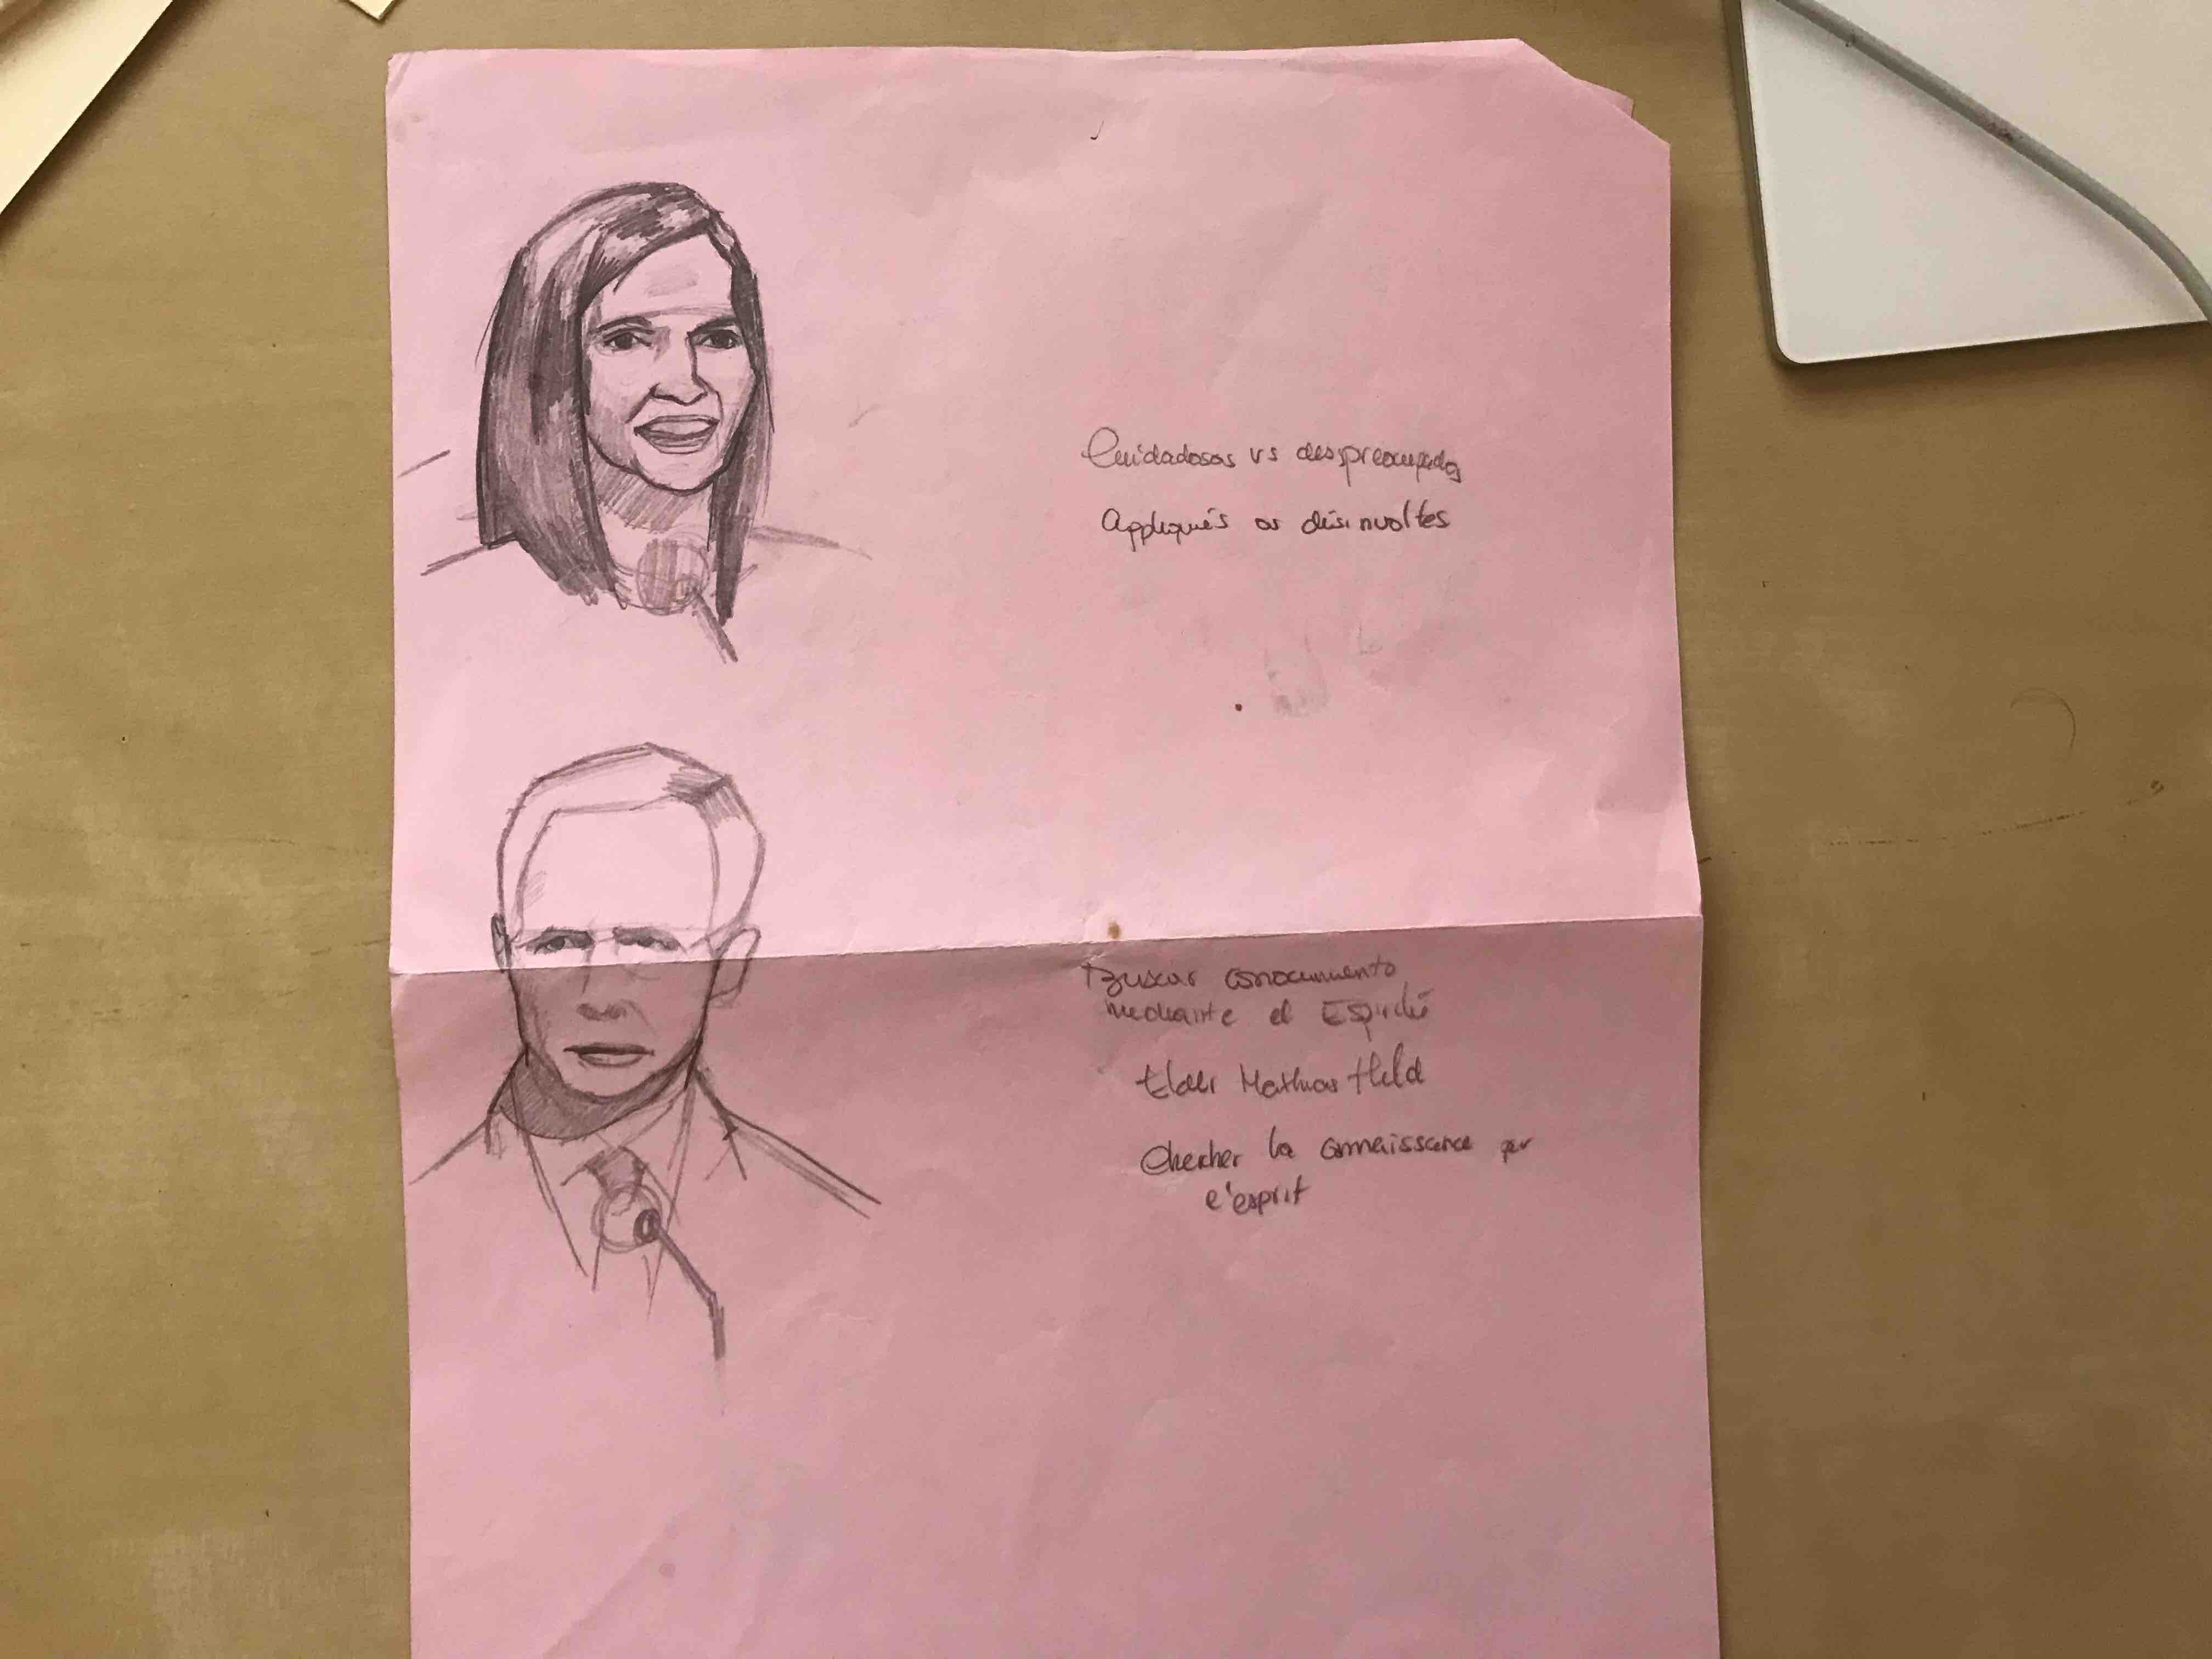 Cuidadosos vs despreocupados
Appliqués vs désinvoltes
Buscar conocimiento
mediante el Espíritu
Elder Mathias Held
Chercher la connaissance par
l'esprit